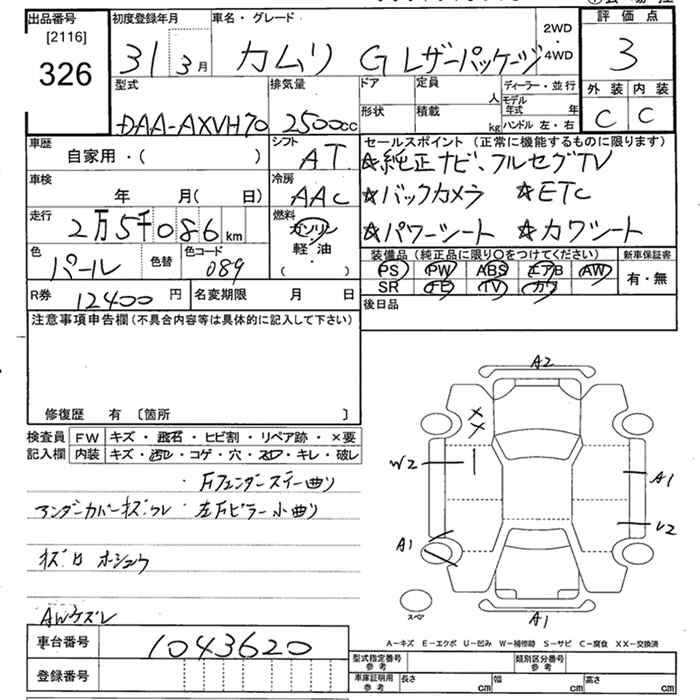 出品番号
[2116]
326
初度登録年月
31 3月
車名・グレード
カムリ G レザーパッケージ
2WD
4WD
評価点
3
外装 内装
C C
型式
DAA-AXVH70
排気量
2500cc
ドア
形状
定員
人
積載
kg
ディーラー・並行
モデル年式 年
ハンドル 左・右
車歴
自家用・( )
シフト
AT
セールスポイント (正常に機能するものに限ります)
☆純正ナビ、フルセグTV
☆バックカメラ ☆ETC
☆パワーシート ☆カワシート
車検
年 月( 日)
冷房
AAC
走行
2万5千086km
燃料
ガソリン
軽油
( ・ )
色
パール
色替
色コード
089
装備品 (純正品に限り○をつけてください)
PS PW ABS エアB AW
SR TV カワ
新車保証書
有・無
R券 12400円
名変期限 月 日
後日品
注意事項申告欄 (不具合内容等は具体的に記入して下さい)
修復歴 有 〔箇所 〕
検査員
記入欄
FW キズ・飛石・ヒビ割・リペア跡・×要
内装 キズ・汚レ・コゲ・穴・スレ・キレ・破レ
アンダーカバーキズ・ワレ
左Fピラー小曲り
AWケズレ
A2
XX
W2
A1
A1
U2
A1
スペア
A-キズ E-エクボ U-凹み W-補修跡 S-サビ C-腐食 XX-交換済
車台番号 1043620
登録番号
型式指定番号
参考
類別区分番号
参考
車庫証明用
参考
長さ cm 幅 cm 高さ cm